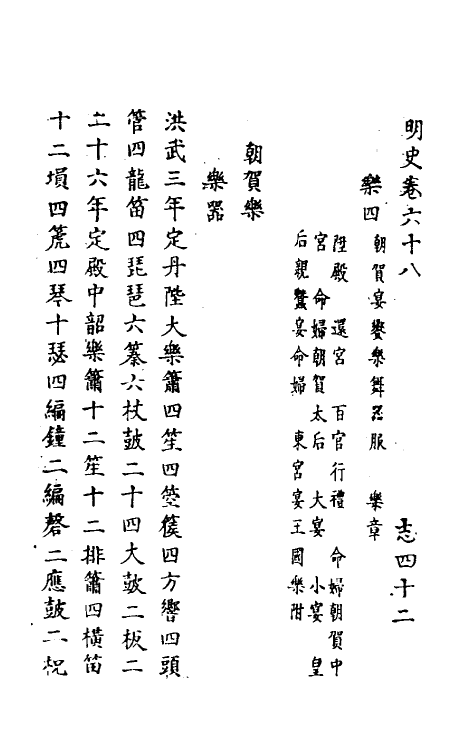 明史卷六十八　志四十二
樂四　朝賀宴饗樂舞器服　樂章
陞殿　還宮　百官行禮　命婦朝賀中
宮　命婦朝賀太后　大宴　小宴　皇
后親蠶宴命婦　東宮宴王國樂附
朝賀樂
樂器
洪武三年定丹陛大樂簫四笙四箜篌四方響四頭
管四龍笛四琵琶六𥱧六杖鼓二十四大鼓二板二
二十六年定殿中韶樂簫十二笙十二排簫四橫笛
十二塤四篪四琴十瑟四編鐘二編磬二應鼓二柷